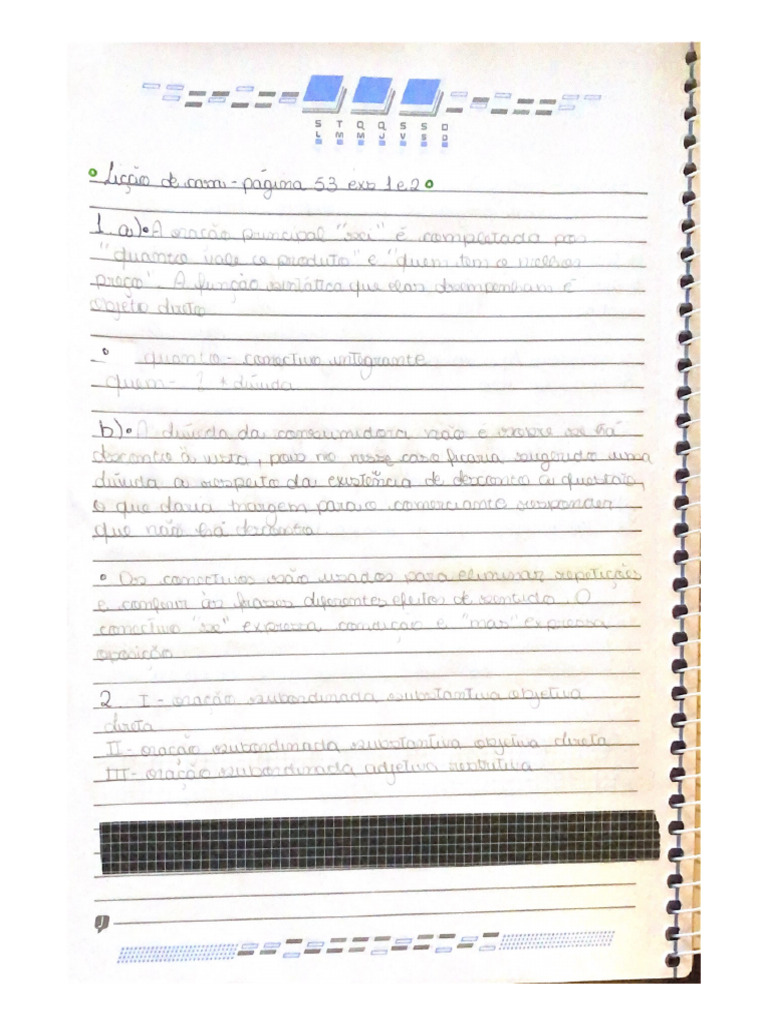 S T Q Q S S D
L M M J V S D
Lição de casa - página 53 exs 1 e 2
1 a) • A oração principal "sei" é completada por
"quanto vale o produto" e "quem tem o melhor
preço". A função sintática que elas desempenham é
objeto direto
• quanto - conectivo integrante
quem - dúvida
b) • A dúvida da consumidora não é sobre se há
desconto à vista, pois nesse caso ficaria sugerido uma
dúvida a respeito da existência de desconto
o que daria margem para o comerciante responder
que não há desconto
• Os conectivos são usados para eliminar repetições
e conferir às frases diferentes efeitos de sentido. O
conectivo "se" expressa condição e "mas" expressa
oposição
2. I - oração subordinada substantiva objetiva
direta
II - oração subordinada substantiva objetiva direta
III - oração subordinada adjetiva restritiva